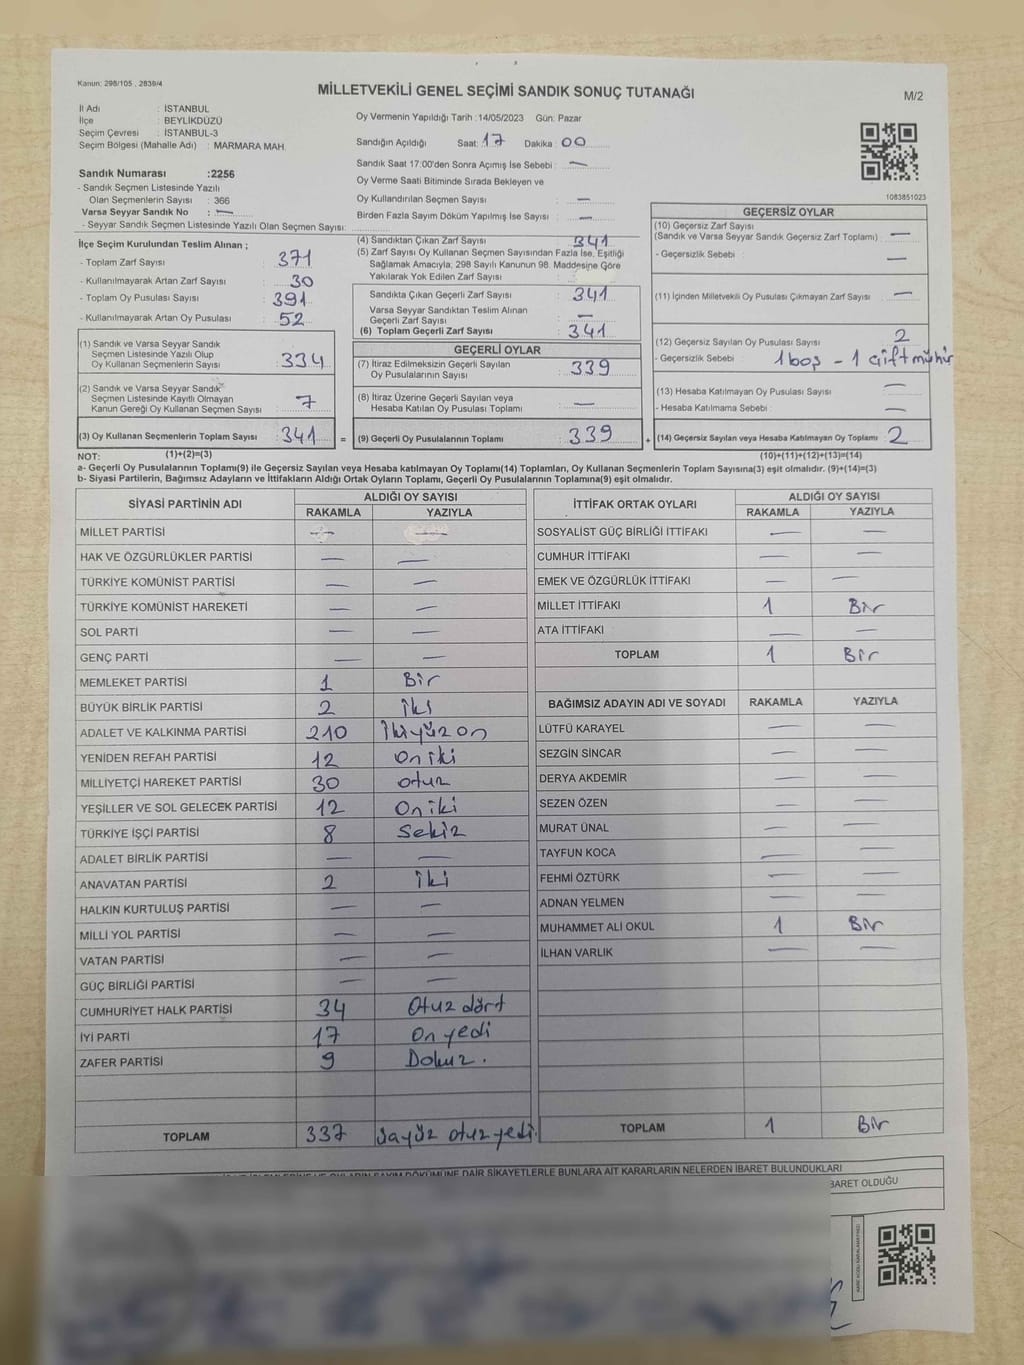 Kanun: 298/105 , 2839/4
MİLLETVEKİLİ GENEL SEÇİMİ SANDIK SONUÇ TUTANAĞI
M/2
İl Adı : İSTANBUL
İlçe : BEYLİKDÜZÜ
Seçim Çevresi : İSTANBUL-3
Seçim Bölgesi (Mahalle Adı) : MARMARA MAH.
Oy Vermenin Yapıldığı Tarih : 14/05/2023 Gün: Pazar
Sandığın Açıldığı Saat: 17 Dakika : 00
Sandık Saat 17:00'den Sonra Açımış İse Sebebi : —
Oy Verme Saati Bitiminde Sırada Bekleyen ve
Oy Kullandırılan Seçmen Sayısı : —
Birden Fazla Sayım Döküm Yapılmış İse Sayısı : —
1083851023
Sandık Numarası :2256
- Sandık Seçmen Listesinde Yazılı
Olan Seçmenlerin Sayısı : 366
Varsa Seyyar Sandık No : —
- Seyyar Sandık Seçmen Listesinde Yazılı Olan Seçmen Sayısı:
İlçe Seçim Kurulundan Teslim Alınan ;
- Toplam Zarf Sayısı : 371
- Kullanılmayarak Artan Zarf Sayısı : 30
- Toplam Oy Pusulası Sayısı : 391
- Kullanılmayarak Artan Oy Pusulası : 52
(1) Sandık ve Varsa Seyyar Sandık
Seçmen Listesinde Yazılı Olup
Oy Kullanan Seçmenlerin Sayısı : 334
(2) Sandık ve Varsa Seyyar Sandık
Seçmen Listesinde Kayıtlı Olmayan
Kanun Gereği Oy Kullanan Seçmen Sayısı : 7
(3) Oy Kullanan Seçmenlerin Toplam Sayısı : 341 =
(4) Sandıktan Çıkan Zarf Sayısı : 341
(5) Zarf Sayısı Oy Kullanan Seçmen Sayısından Fazla İse, Eşitliği
Sağlamak Amacıyla, 298 Sayılı Kanunun 98. Maddesine Göre
Yakılarak Yok Edilen Zarf Sayısı :
Sandıkta Çıkan Geçerli Zarf Sayısı : 341
Varsa Seyyar Sandıktan Teslim Alınan
Geçerli Zarf Sayısı : —
(6) Toplam Geçerli Zarf Sayısı : 341
GEÇERLİ OYLAR
(7) İtiraz Edilmeksizin Geçerli Sayılan
Oy Pusulalarının Sayısı : 339
(8) İtiraz Üzerine Geçerli Sayılan veya
Hesaba Katılan Oy Pusulası Toplamı : —
(9) Geçerli Oy Pusulalarının Toplamı : 339 +
GEÇERSİZ OYLAR
(10) Geçersiz Zarf Sayısı
(Sandık ve Varsa Seyyar Sandık Geçersiz Zarf Toplamı) : —
- Geçersizlik Sebebi : —
(11) İçinden Milletvekili Oy Pusulası Çıkmayan Zarf Sayısı : —
(12) Geçersiz Sayılan Oy Pusulası Sayısı : 2
- Geçersizlik Sebebi : 1 boş - 1 çift mühür
(13) Hesaba Katılmayan Oy Pusulası Sayısı : —
- Hesaba Katılmama Sebebi : —
(14) Geçersiz Sayılan veya Hesaba Katılmayan Oy Toplamı : 2
NOT: (1)+(2)=(3)
(10)+(11)+(12)+(13)=(14)
a- Geçerli Oy Pusulalarının Toplamı(9) ile Geçersiz Sayılan veya Hesaba katılmayan Oy Toplamı(14) Toplamları, Oy Kullanan Seçmenlerin Toplam Sayısına(3) eşit olmalıdır. (9)+(14)=(3)
b- Siyasi Partilerin, Bağımsız Adayların ve İttifakların Aldığı Ortak Oyların Toplamı, Geçerli Oy Pusulalarının Toplamına(9) eşit olmalıdır.
SİYASİ PARTİNİN ADI ALDIĞI OY SAYISI
RAKAMLA YAZIYLA
MİLLET PARTİSİ — —
HAK VE ÖZGÜRLÜKLER PARTİSİ — —
TÜRKİYE KOMÜNİST PARTİSİ — —
TÜRKİYE KOMÜNİST HAREKETİ — —
SOL PARTİ — —
GENÇ PARTİ — —
MEMLEKET PARTİSİ 1 Bir
BÜYÜK BİRLİK PARTİSİ 2 İki
ADALET VE KALKINMA PARTİSİ 210 İkiyüz on
YENİDEN REFAH PARTİSİ 12 On iki
MİLLİYETÇİ HAREKET PARTİSİ 30 otuz
YEŞİLLER VE SOL GELECEK PARTİSİ 12 On iki
TÜRKİYE İŞÇİ PARTİSİ 8 Sekiz
ADALET BİRLİK PARTİSİ — —
ANAVATAN PARTİSİ 2 İki
HALKIN KURTULUŞ PARTİSİ — —
MİLLİ YOL PARTİSİ — —
VATAN PARTİSİ — —
GÜÇ BİRLİĞİ PARTİSİ — —
CUMHURİYET HALK PARTİSİ 34 Otuz dört
İYİ PARTİ 17 On yedi
ZAFER PARTİSİ 9 Dokuz.
TOPLAM 337 üçyüz otuz yedi.
İTTİFAK ORTAK OYLARI ALDIĞI OY SAYISI
RAKAMLA YAZIYLA
SOSYALİST GÜÇ BİRLİĞİ İTTİFAKI — —
CUMHUR İTTİFAKI — —
EMEK VE ÖZGÜRLÜK İTTİFAKI — —
MİLLET İTTİFAKI 1 Bir
ATA İTTİFAKI — —
TOPLAM 1 Bir
BAĞIMSIZ ADAYIN ADI VE SOYADI RAKAMLA YAZIYLA
LÜTFÜ KARAYEL — —
SEZGİN SİNCAR — —
DERYA AKDEMİR — —
SEZEN ÖZEN — —
MURAT ÜNAL — —
TAYFUN KOCA — —
FEHMİ ÖZTÜRK — —
ADNAN YELMEN — —
MUHAMMET ALİ OKUL 1 Bir
İLHAN VARLIK — —
TOPLAM 1 Bir
SAYIM DÖKÜMÜNE DAİR ŞİKAYETLERLE BUNLARA AİT KARARLARIN NELERDEN İBARET BULUNDUKLARI
BARET OLDUĞU